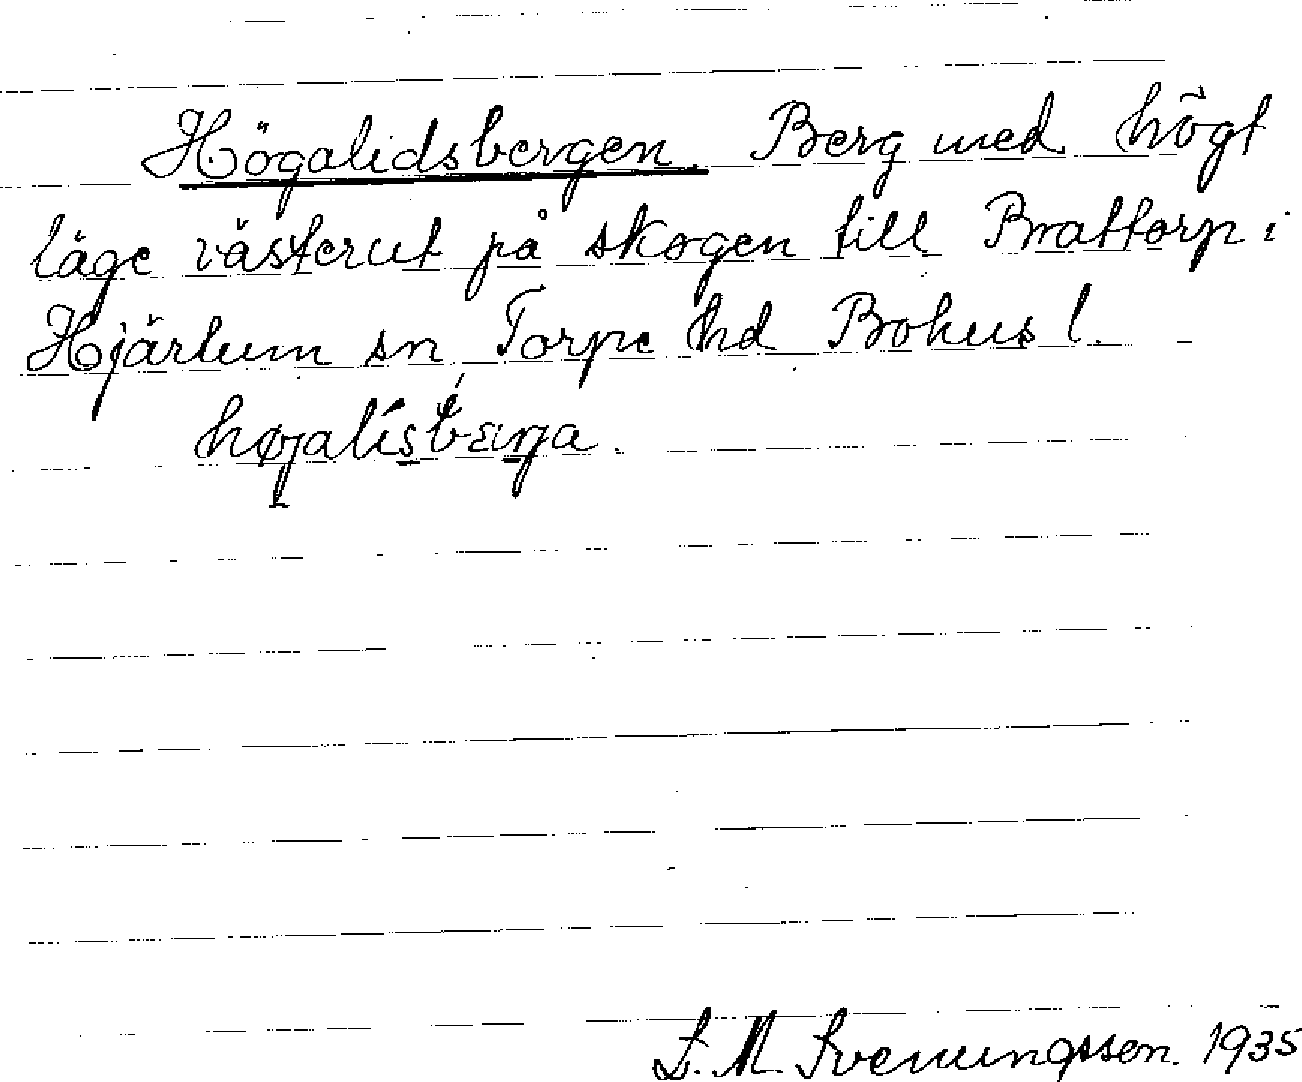 Högalidsbergen. Berg med högt
läge västerut på skogen till Brattorp i
Hjärtum sn Torpe hd Bohus l.
høgalisbærga.
S. M. Svenungsson. 1935